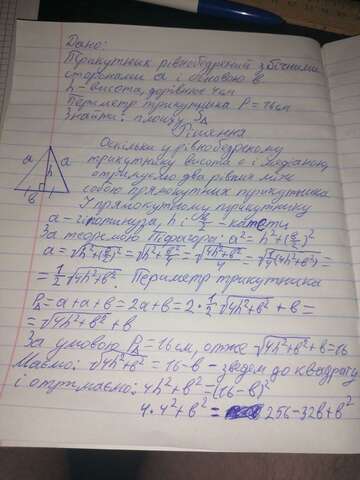 Дано:
Трикутник рівнобедрений з бічними
сторонами a і основою b.
h - висота, дорівнює 4см
Периметр трикутника P = 16см
Знайти: площу S△
Рішення
Оскільки у рівнобедреному
трикутнику висота є і медіаною,
отримуємо два рівних між
собою прямокутних трикутника
У прямокутному трикутнику
a a h b
a - гіпотенуза, h і b/2 - катети
За теоремою Піфагора: a² = h² + (b/2)²
a = √h² + (b/2)² = √h² + b²/4 = √4h² + b²/4 = √1/4(4h² + b²) =
= 1/2 √4h² + b². Периметр трикутника
P△ = a + a + b = 2a + b = 2 · 1/2 √4h² + b² + b =
= √4h² + b² + b
За умовою P△ = 16см, отже √4h² + b² + b = 16
Маємо: √4h² + b² = 16 - b - зведем до квадрату
і отримаємо: 4h² + b² = (16 - b)²
4·4² + b² = 256 - 32b + b²